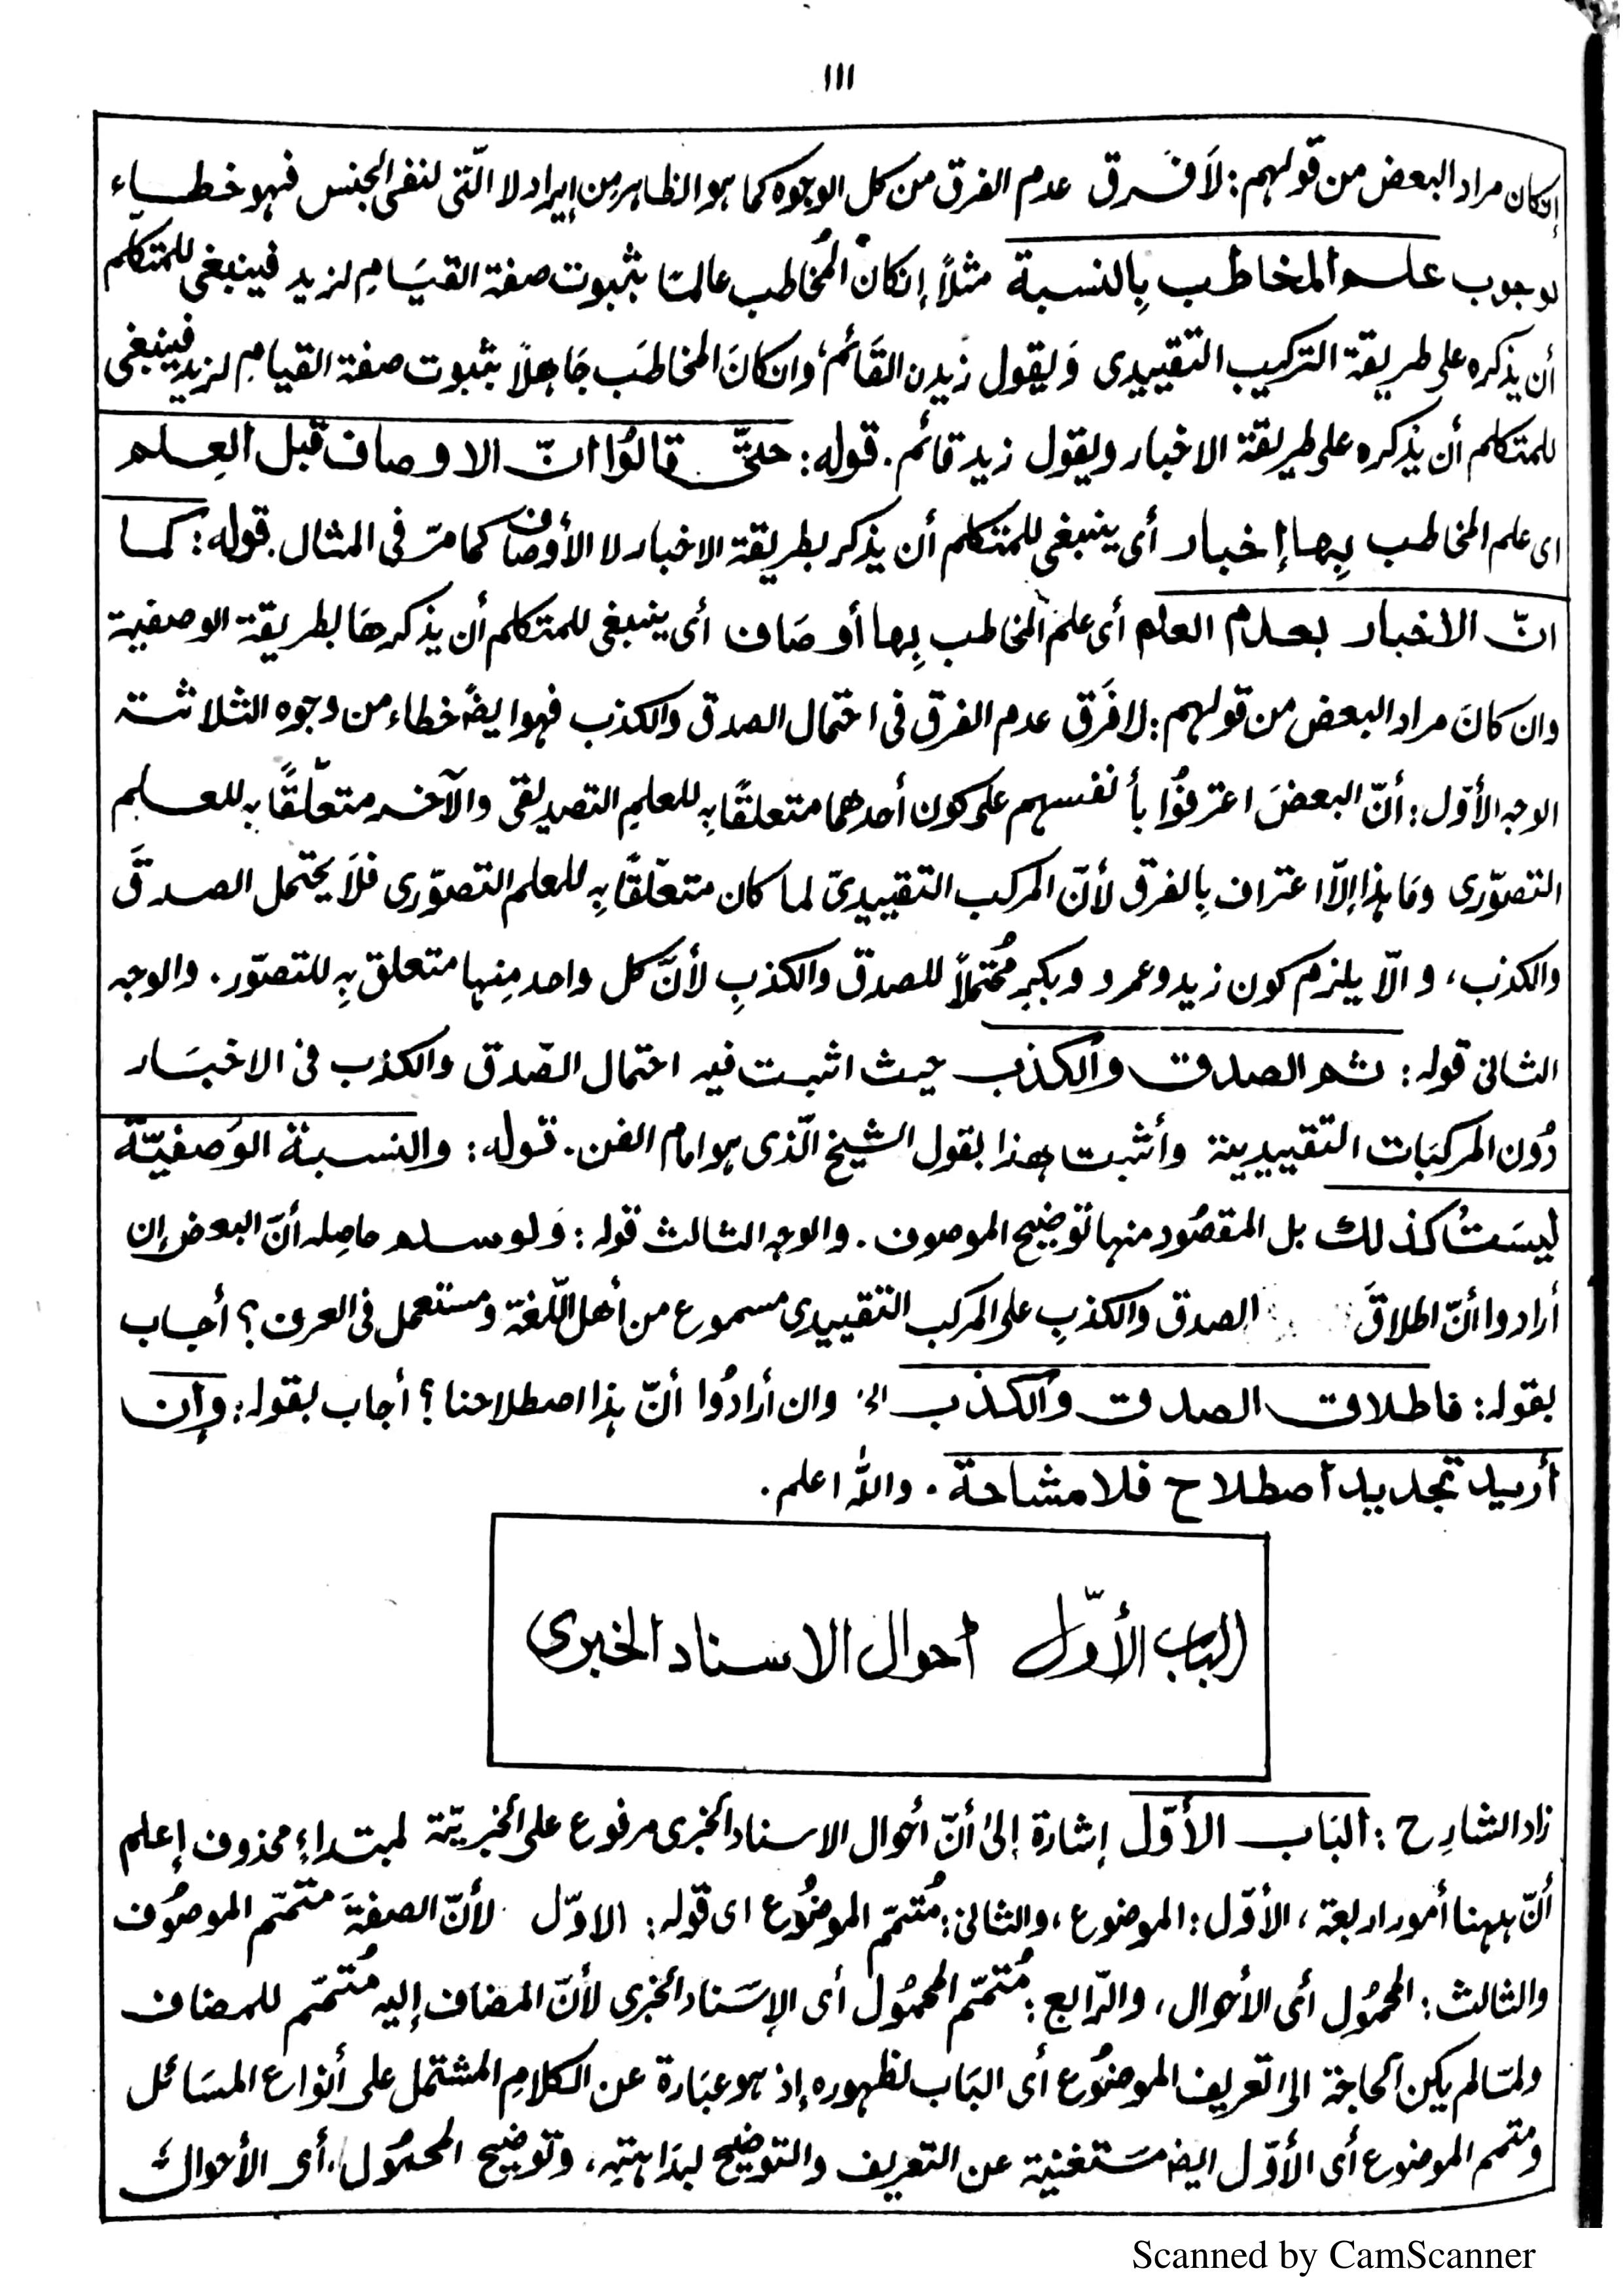 ۱۱۱
إنكان مراد البعض من قولهم: لَا فَرق عدم الفرق من كل الوجوه كما هو الظاهر من إيراد لا الّتى لنفى الجنس فهو خطاء
لوجوب علم المخاطب بِالنسبة مثلاً إنكان المُخاطب عالمًا بثبوت صفة القيَامِ لزيد فينبغى للمتكلم
أن يذكره على طريقة التركيب التقييدى وَيقول زيدن القَائم، وانكانَ المخاطَب جَاهلاً بثبوت صفة القيامِ لزيد فينبغى
للمتكلم أن يذكره على طريقة الاخبار ويقول زيد قائم. قوله: حتّى قالوُا انّ الاوصاف قبل العِلم
اى علم المخاطب بِها إخبار أى ينبغى للمتكلم أن يذكر بطريقة الاخبار لا الأوصاف كما مرّ فى المثال. قوله: كما
انّ الاخبار بعدم العلم أى علم المخاطب بِها أوصَاف أى ينبغى للمتكلم أن يذكرهَا بطريقة الوصفية
وان كانَ مراد البعض من قولهم: لا فَرق عدم الفرق فى احتمال الصدق والكذب فهو ايضً خطاء من وجوه الثلاثة
الوجه الأوّل: أنّ البعضَ اعترفوُا بأنفسهم على كون أحدهما متعلقًا بِه للعلمِ التصديقى والآخر متعلّقًا بِه للعلم
التصوّرى ومَا هذا إلاّ اعتراف بِالفرق لأنّ المركب التقييدىّ لما كان متعلّقًا بِه للعلم التصوّرى فلَا يحتمل الصدقَ
والكذب، والّا يلزم كون زيد وعمرو وبكرٍ مُحتملاً للصدق والكذبِ لأنَّ كل واحد مِنها متعلق بِه للتصوّر. والوجه
الثانى قوله: ثم الصدق والكذب حيث اثبت فيه احتمال الصّدق والكذب فى الاخبَار
دُون المركبَات التقييدية وأثبت هذا بقول الشيخ الّذى هو امام الفن. قوله: والنسبة الوَصفيّة
ليسَتْ كذلك بل المقصُود منها توضيح الموصوف. والوجه الثالث قوله: وَلو سلم حاصِله أنّ البعض إن
أرادوا أنّ اطلاقَ الصدق والكذبِ على المركب التقييدى مسموع من أهل اللّغة ومستعمل فى العرف؟ أجاب
بقوله: فاطلاق الصدق والكذب الخ وان أرادوُا أنّ هذا اصطلاحنا؟ أجاب بقوله: وإن
أريد تجديد اصطلاح فلا مشاحة. والله اعلم.
الباب الأوّل احوال الاسناد الخبرى
زاد الشارِح: البَاب الأوّل إشارة إلىٰ أنّ أحوال الاسناد الخبرى مرفوع على الخبريّة لمبتداءٍ محذوف إعلم
أنّ ههنا أمور اربعة، الأوّل: الموضوع، والثانى: مُتمّم الموضوُع اى قوله: الاوّل لأنّ الصفةَ متمّم الموصوُف
والثالث: المحموُل أى الأحوال، والرّابع: مُتمّم المحموُل أى الإسَناد الخبرى لأنّ المضاف إليه مُتمّم للمضاف
ولمّا لم يكن الحاجة الى تعريف الموضوُع أى البَاب لظهوره إذ هو عبَارة عن الكلامِ المشتمل على أنواع المسَائل
ومتمم الموضوع أى الأوّل ايضً مسَتغنية عن التعريف والتوضيح لبدَاهتِه، وتوضيح المحموُل أى الأحوال
Scanned by CamScanner